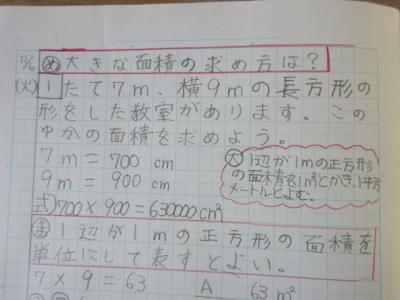 11/6 め 大きな面積の求め方は?
(火) 1 たて7m、横9mの長方形の
形をした教室があります。この
ゆかの面積を求めよう。
7m = 700 cm
9m = 900 cm
式) 700×900=630000cm²
大 1辺が1mの正方形
の面積を1m²とかき、1平方
メートルとよむ。
ま 1辺が1mの正方形の面積を
単位にして表すとよい。
7×9=63
A 63m²